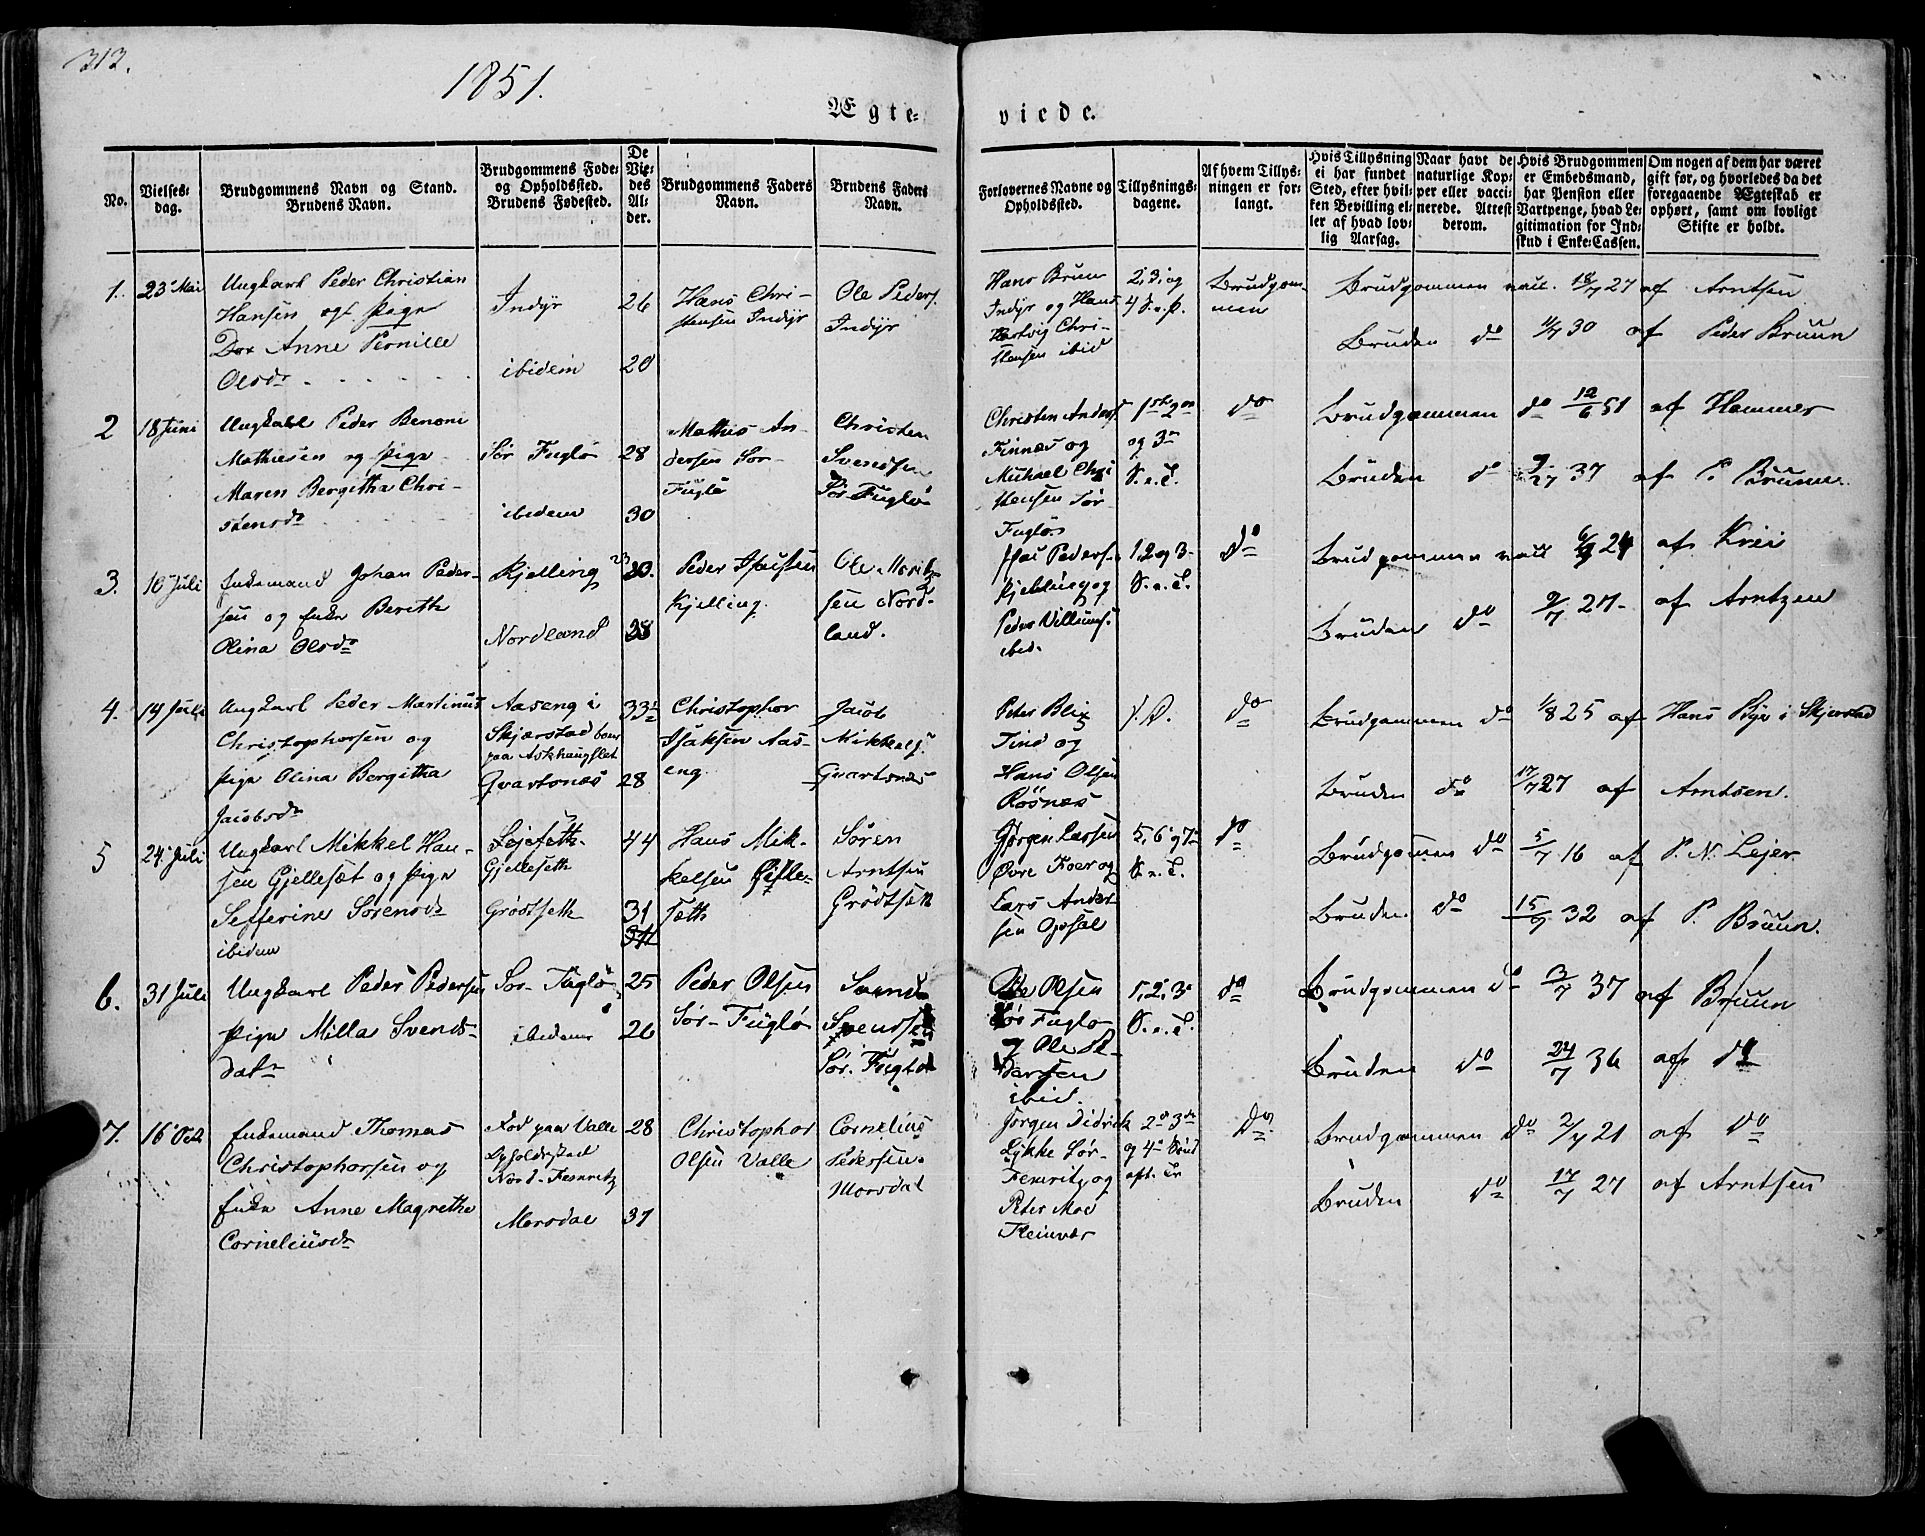 313.
1851.
Ægte= viede.
No.
Vielses=
dag.
Brudgommens Navn og Stand.
Brudens Navn.
Brudgommens Føde=
og Opholdssted.
Brudens Fødested.
De
Vie=
des
Al=
der.
Brudgommens Faders
Navn.
Brudens Faders
Navn.
Forlovernes Navne og
Opholdssted.
Tillysnings=
dagene.
Af hvem Tillys=
ningen er for=
langt.
Hvis Tillysning
ei har fundet
Sted, efter hvil=
ken Bevilling el=
ler af hvad lov=
lig Aarsag.
Naar havt de
naturlige Kop=
per eller vacci=
nerede. Attest
derom.
Hvis Brudgommen
er Embedsmand,
har Pension eller
Vartpenge, hvad Le=
gitimation for Ind=
skud i Enke=Cassen.
Om nogen af dem har været
gift før, og hvorledes da det
foregaaende Ægteskab er
ophørt, samt om lovligt
Skifte er holdt.
1.
23 Mai
Ungkarl Peder Christian
Hansen og Pige
Anne Pernille
Olsdr
Indyr
ibidem
26
20
Hans Chri-
stensen Indyr
Ole Peders.
Indyr
Hans Bruun
Indyr og Hans
Hartvig Chri-
stensen ibid
2, 3, og
4 S. e. P.
Brudgom-
men
Brudgommen vacc. 18/7 27 af Arntsen
Bruden do 11/7 30 af Peder Bruun
2
18 Juni
Ungkarl Peder Benoni
Mathiesen og Pige
Maren Bergitha Chri-
stensdr
Sør Fuglø
ibidem
28
30
Mathis An-
dersen Sør-
Fuglø
Christen
Svendsen
Sør Fuglø
Christen Anders
Finnæs og
Michael Chri
stensen Sør
Fuglø
1ste 2en
og 3e
S. e. T.
do
Brudgommen do 12/6 51 af Hammer
Bruden do 9/7 37 af P. Bruun.
3.
10 Juli
Enkemand Johan Peder-
sen og Enke Berith
Olina Olsdr
Kjelling
Nordland
30.
28
Peder
Kjelling.
Ole Moritz
sen Nord-
land.
Peders.
Kjelling og
Peder Villums.
ibid.
1. 2 og 3-
S. e. T.
do
Brudgommen vacc 6/9 24 af Krei
Bruden do 9/7 27- af Arntzen
4.
14 Juli
Ungkarl Peder Martinus
Christophersen og
Pige Olina Bergitha
Jacobsdr
Aaseng i
Skjærstad boer
paa Askhaugslet
Qvartsnæs
33½
28
Christopher
Isaksen Aas-
eng
Jacob
Mikkels.
Qvartsnæs
Peter Blix
Tind og
Hans Olsen
Røsnæs
do
Brudgommen do 1/8 25 af Hans Bye i Skjerstad
Bruden do 17/7 27 af Arntsen.
5
24 Juli
Ungkarl Mikkel Han-
sen Gjellesæt og Pige
Sefferine Sørensdr
ibidem
Gjelleseth
Grødtseth
44
31
Hans Mik-
kelsen Gille-
sæth
Søren
Arntsen
Grødtseth
Jørgen Larsen
Øvre Foer og
Lars Ander
sen Opsal
5, 6 og 7
S. e. T.
do
Brudgomen do 5/7 16 af P. N. Lejer
Bruden do 15/7 32 af P. Bruun.
6.
31 Juli
Ungkarl Peder Pedersen
Pige Milla Svends-
datr
Sør-Fuglø
ibidem
25
26
Peder Olsen
Sør-Fuglø
Svend
Svendsen
Sør-Fuglø
Ole Olsen
Sør Fuglø
og Ole Pe-
dersen
ibid.
1, 2, 3
S. e. T.
do
Brudgommen do 13/7 37 af Bruun
Bruden do 24/7 36 af do
7.
16 Oct
Enkemand Thomas
Christophersen og
Enke Anne Magrethe
Corneliusdr
Fød paa Valle
Opholdssted
Nord-
Morsdal
28
37
Christopher
Olsen Valle
Cornelius
Pedersen
Morsdal
Jørgen Didrick
Lykke Sør-
og
Peter Moe
Fleinvær
2d 3de
og 4 Sønd
eft. Tr
do
Brudgommen do 2/7 21 af do
Bruden do 17/7 27 af Arntsen